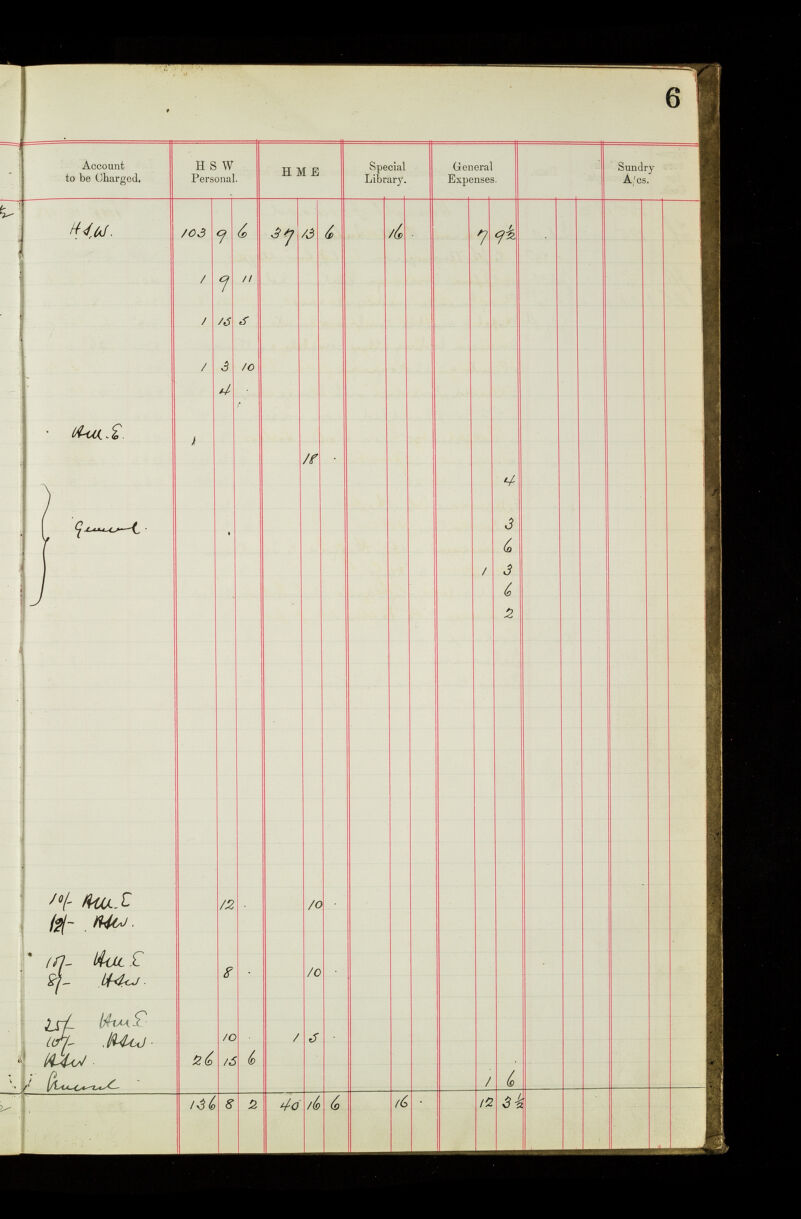 6
Account to be Charged. H S W Personal. H M E Special Library. General Expenses. Sundry A/cs.
H.S.W. 103 9 6 37 13 6 16 · 7 9½
1 9 11
1 15 5
1 3 10
4 ·
H.M.E.
18 ·
4
General · 3
6
1 3
6
2
10/- H.M.E 12 · 10 ·
12/- H.S.W.
10/- H.M.E 8 · 10 ·
8/- H.S.W.
25/- H.M.E.
10/- H.S.W. 10 · 1 5
H.S.W. 26 15 6
General 1 6
136 8 2 40 16 6 16 · 12 3½